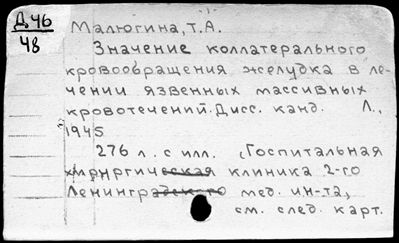 Д.46
48
Малюгина, Т.А.
Значение коллатерального
кровообращения желудка в ле-
чении язвенных массивных
кровотечений. Дисс. канд. Л.,
1945
276 л. с илл. (Госпитальная
хирургическая клиника 2-го
Ленинградского мед. ин-та,
см. след. карт.